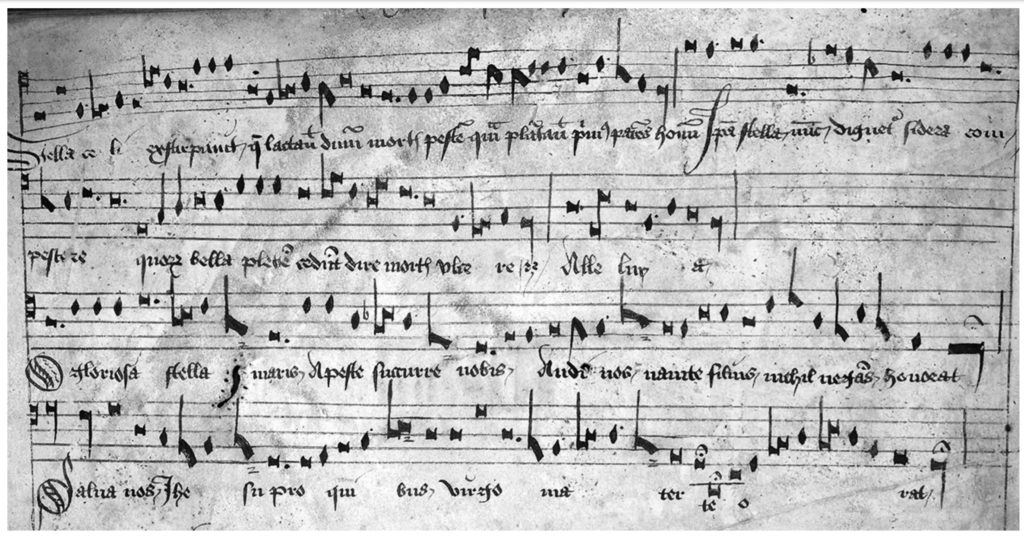 Stella celi extirpavit q̄ lactav̄ dnm̄ mortis pestē quā plātavit p̄mꝰ parēs hom̄ Ipa stella nūc dignet̉ sidera com
pescere quoꝝ bella plebē cedūt dire mortis ulce re Alle luy a
O gloriosa stella maris A peste succurre nobis Audi nos nam te filius nichil negās honorat
Salva nos Jhe su pro qui bus virgo ma ter te o rat